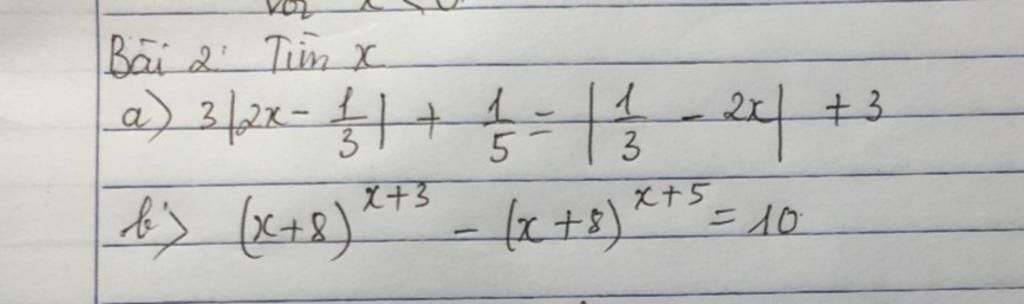 Bài 2: Tìm x
a) 3|2x - 1/3| + 1/5 = |1/3 - 2x| + 3
b) (x+8)^(x+3) - (x+8)^(x+5) = 10